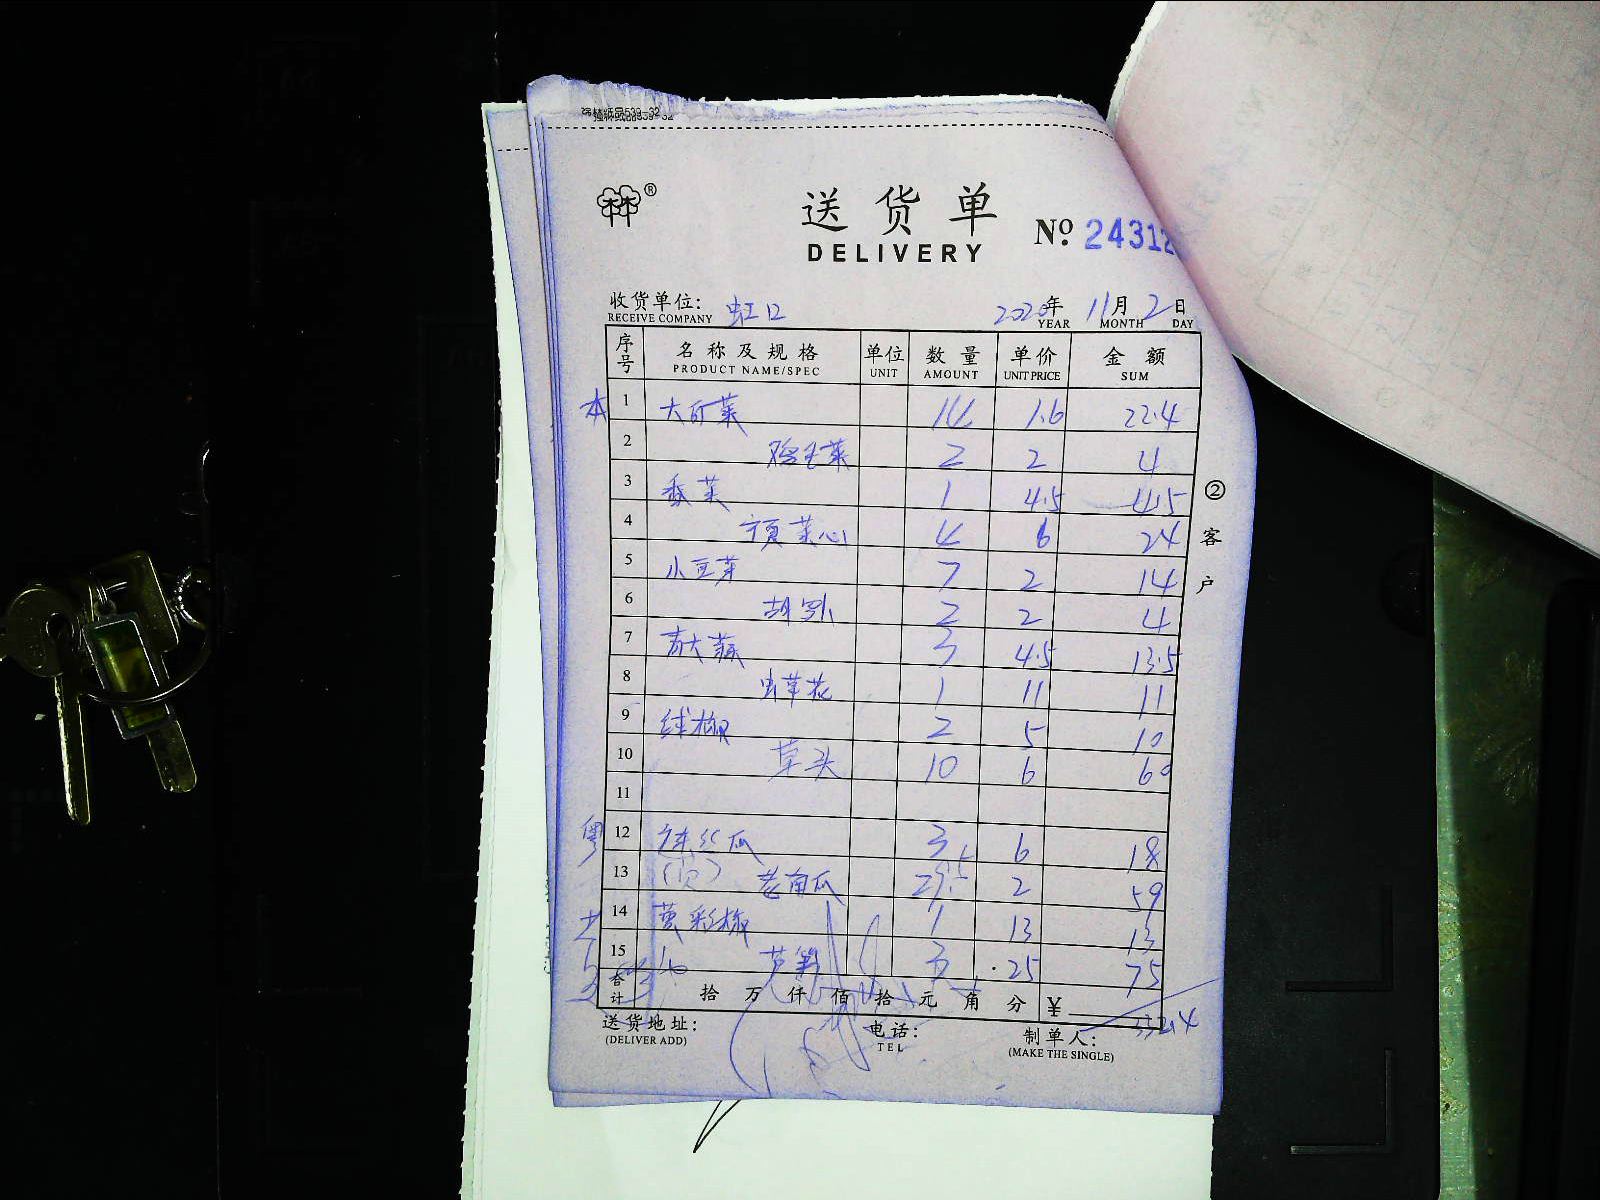 送货单
DELIVERY
№ 24312
收货单位: 虹口 2020年 11月 2日
RECEIVE COMPANY YEAR MONTH DAY
序号 名称及规格 单位 数量 单价 金额
PRODUCT NAME/SPEC UNIT AMOUNT UNIT PRICE SUM
本 1 14 1.6 22.4
2 2 2 4
3 香菜 1 4.5 4.5
4 菜心 4 6 24
5 小豆芽 7 2 14
6 胡萝卜 2 2 4
7 青大蒜 3 4.5 13.5
8 虫草花 1 11 11
9 绿椒 2 5 10
10 草头 10 6 60
11
粤 12 丝瓜 3 6 18
13 老南瓜 29.5 2 59
14 黄彩椒 1 13 13
15 芦笋 3 25 75
合计 拾 万 仟 佰 拾 元 角 分 ¥ 332.4
送货地址: 电话: 制单人:
(DELIVER ADD) TEL (MAKE THE SINGLE)
②客户